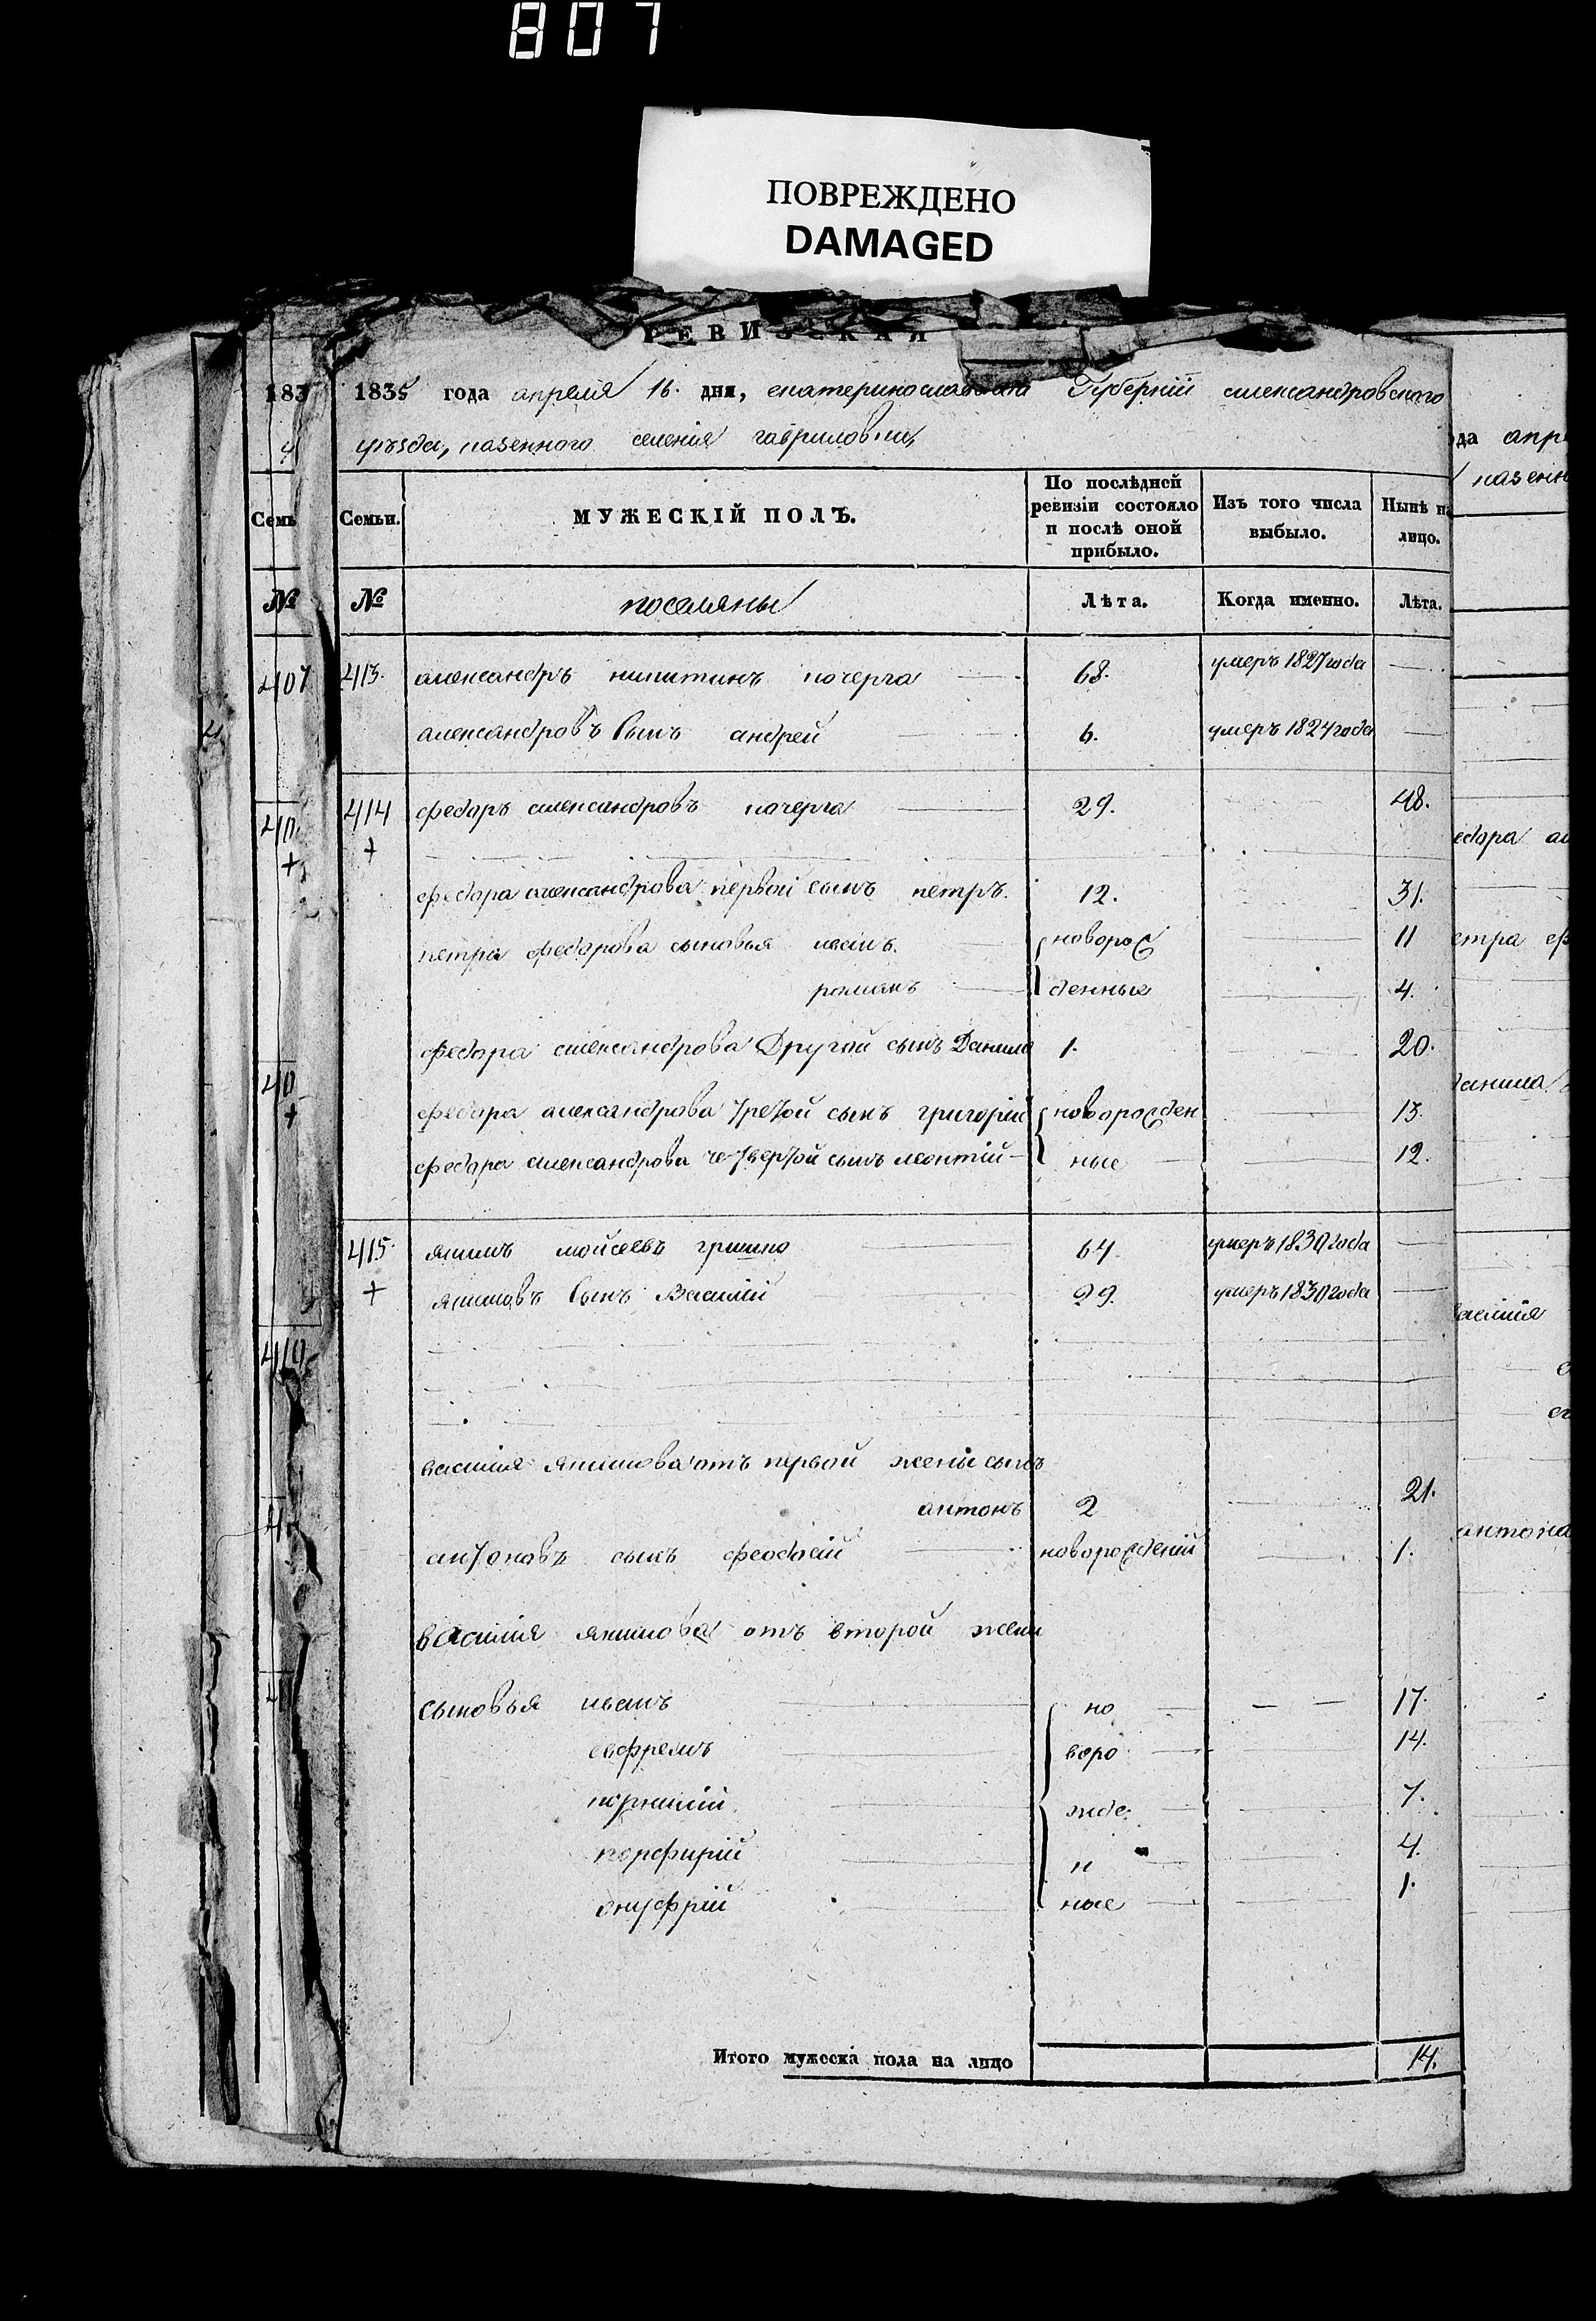 807
ПОВРЕЖДЕНО
DAMAGED
РЕВИЗСКАЯ
1835 года апреля 16. дня, екатеринославской Губерніи александровского
уѣзда, казенного селенія гавриловки,
Семьи. МУЖЕСКІЙ ПОЛЪ. По послѣдней ревизіи состояло и послѣ оной прибыло. Изъ того числа выбыло. Нынѣ на лицо.
№ поселяны Лѣта. Когда именно. Лѣта.
413. александръ никитинъ кочерга 68. умеръ 1827 года
александровъ сынъ андрей 6. умеръ 1824 года
414 федоръ александровъ кочерга 29. 48.
+
федора александрова первой сынъ петръ. 12. 31.
петра федорова сыновья иванъ. новорож 11
романъ денные 4.
федора александрова Другой сынъ Данило 1. 20.
федора александрова третой сынъ григорій новорожден 13.
федора александрова четвертой сынъ леонтій ные 12.
415. якимъ мойсеевъ гришко 64. умеръ 1830 года
+ якимовъ сынъ Василій 29. умеръ 1830 года
василія якимова отъ первой жены сынъ
антонъ 2 21.
антоновъ сынъ феодосій новорожденій 1.
василія якимова отъ второй жены
сыновья иванъ но 17.
евфремъ воро 14.
корнилій жде 7.
порфирій н 4.
онуфрій ные 1.
Итого мужеска пола на лицо 14.